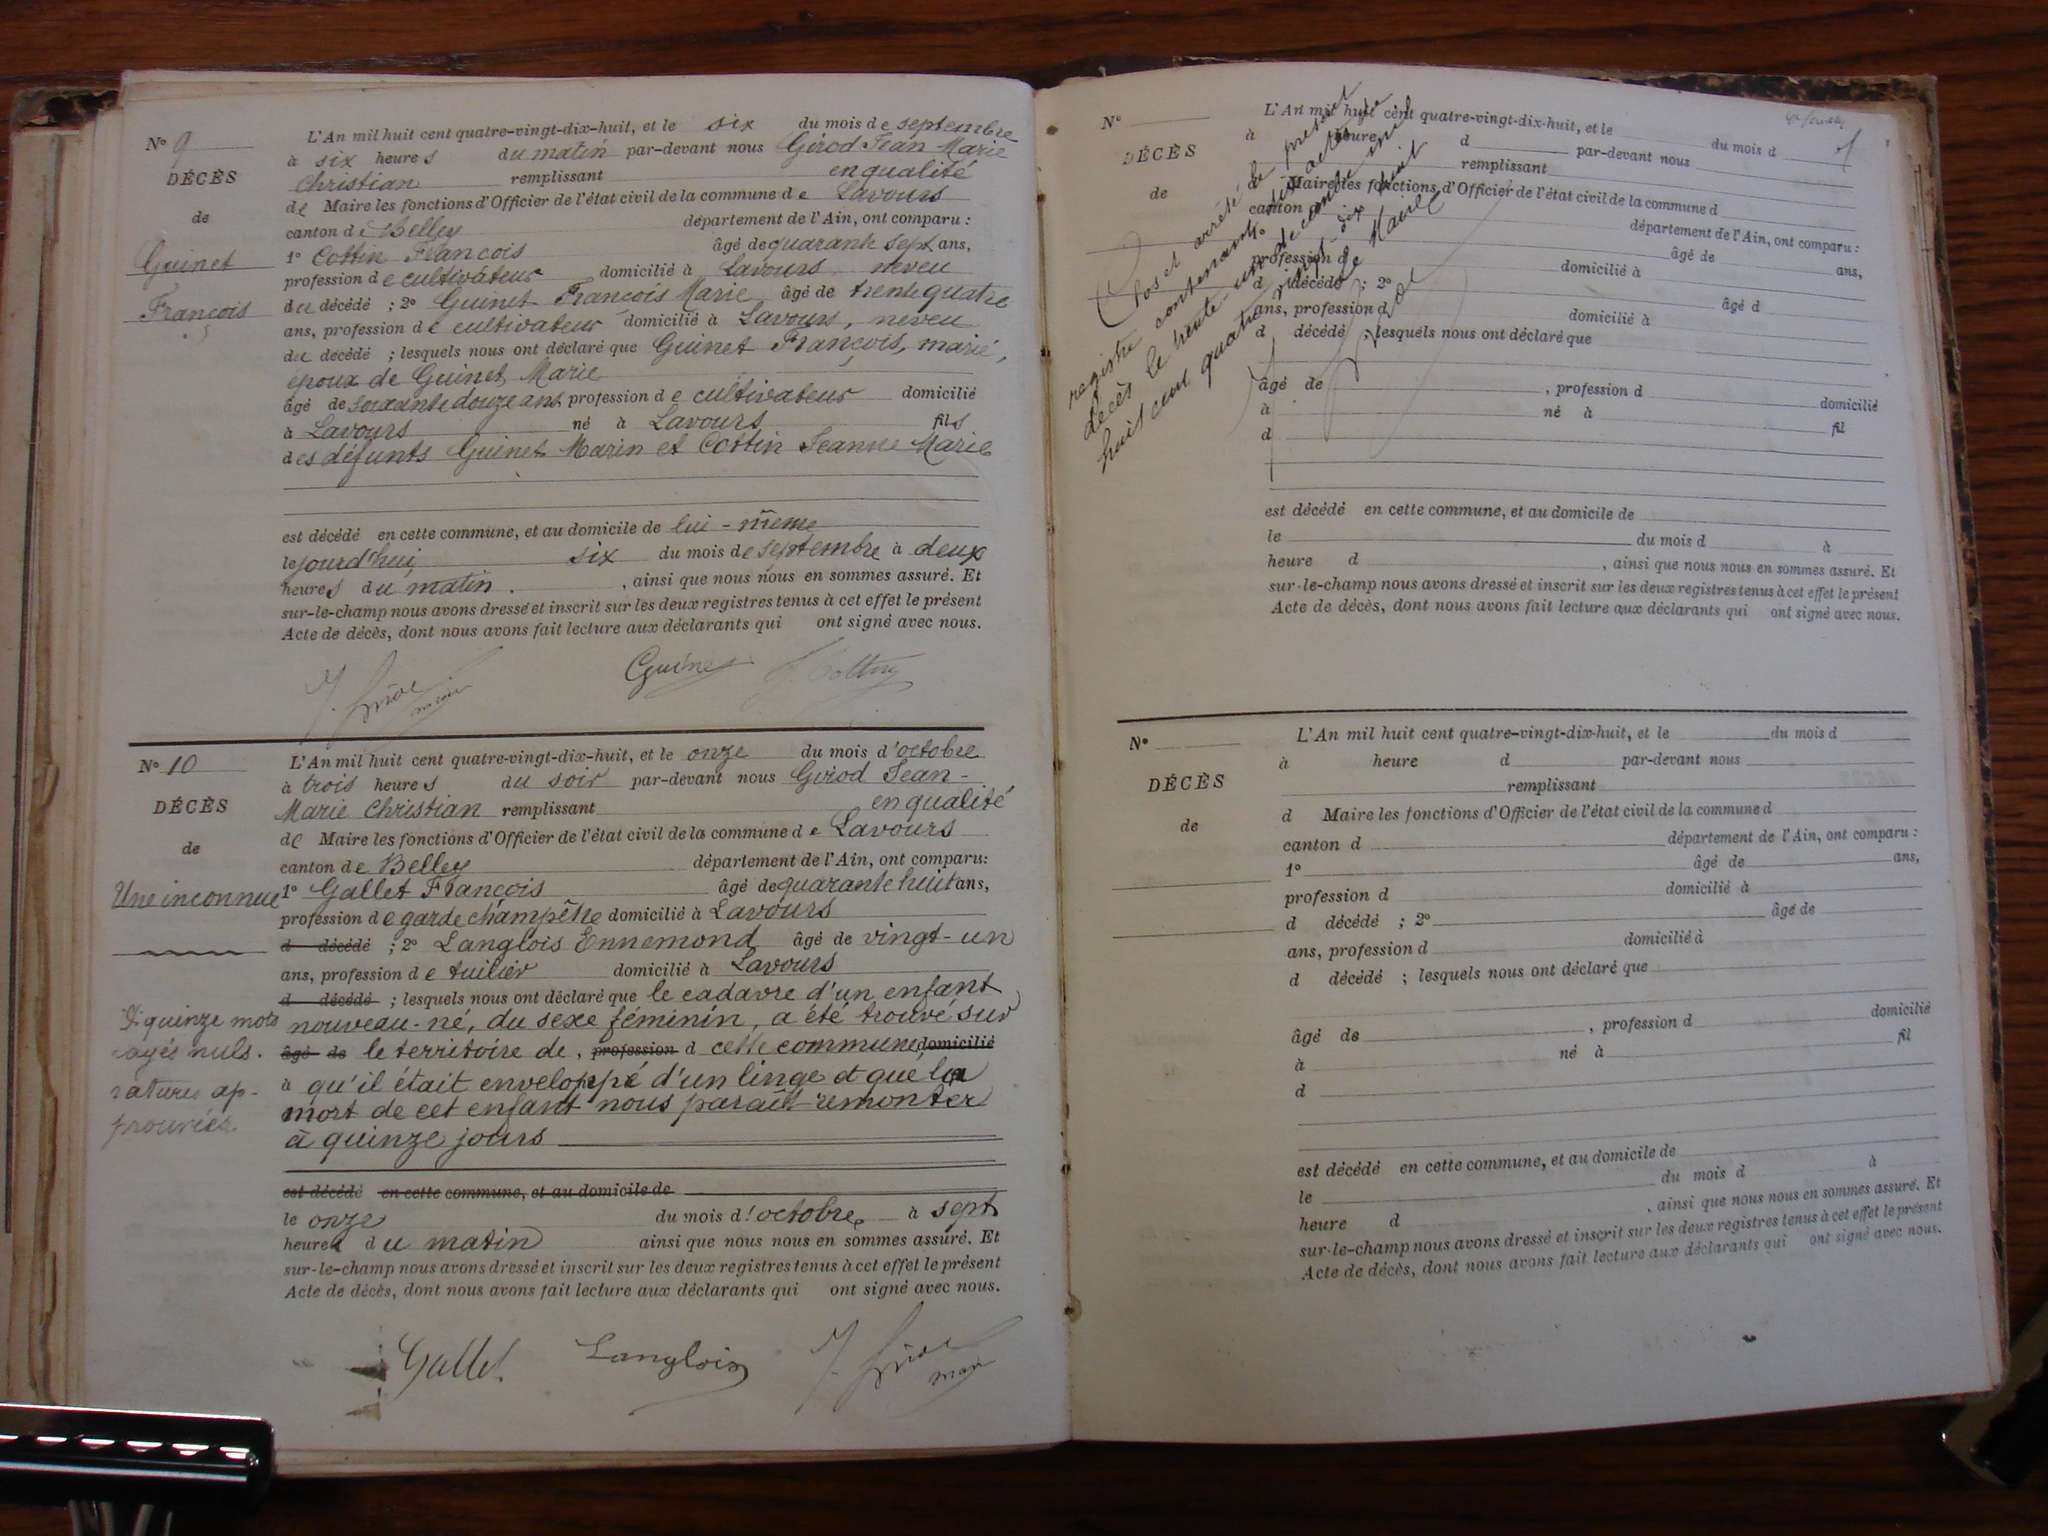 N° 9
DÉCÈS
de
Guinet
François
L'An mil huit cent quatre-vingt-dix-huit, et le six du mois de septembre
à six heures du matin par-devant nous Girod Jean Marie
Christian remplissant en qualité
de Maire les fonctions d'Officier de l'état civil de la commune de Lavours
canton de Belley département de l'Ain, ont comparu :
1° Cottin François âgé de quarante sept ans,
profession de cultivateur domicilié à Lavours neveu
du décédé ; 2° Guinet François Marie âgé de trente quatre
ans, profession de cultivateur domicilié à Lavours, neveu
du décédé ; lesquels nous ont déclaré que Guinet François, marié,
époux de Guinet Marie
âgé de soixante douze ans profession de cultivateur domicilié
à Lavours né à Lavours fils
des défunts Guinet Marin et Cottin Jeanne Marie
est décédé en cette commune, et au domicile de lui-même
le jourd'hui, six du mois de septembre à deux
heures du matin. , ainsi que nous nous en sommes assuré. Et
sur-le-champ nous avons dressé et inscrit sur les deux registres tenus à cet effet le présent
Acte de décès, dont nous avons fait lecture aux déclarants qui ont signé avec nous.
J. Girod maire Guinet F. Cottin
N° 10
DÉCÈS
de
Une inconnue
quinze mots
rayés nuls.
ratures ap-
prouvées
L'An mil huit cent quatre-vingt-dix-huit, et le onze du mois d'octobre
à trois heures du soir par-devant nous Girod Jean-
Marie Christian remplissant en qualité
de Maire les fonctions d'Officier de l'état civil de la commune de Lavours
canton de Belley département de l'Ain, ont comparu:
1° Gallet François âgé de quarante huit ans,
profession de garde champêtre domicilié à Lavours
d décédé ; 2° Langlois Ennemond âgé de vingt-un
ans, profession de tuilier domicilié à Lavours
d décédé ; lesquels nous ont déclaré que le cadavre d'un enfant
nouveau-né, du sexe féminin, a été trouvé sur
âgé de le territoire de , profession d cette commune domicilié
à qu'il était enveloppé d'un linge et que la
mort de cet enfant nous parait remonter
à quinze jours
est décédé en cette commune, et au domicile de
le onze du mois d'octobre à sept
heures du matin ainsi que nous nous en sommes assuré. Et
sur-le-champ nous avons dressé et inscrit sur les deux registres tenus à cet effet le présent
Acte de décès, dont nous avons fait lecture aux déclarants qui ont signé avec nous.
Gallet. Langlois J. Girod maire
N°
DÉCÈS
de
L'An mil huit cent quatre-vingt-dix-huit, et le du mois d
à heure d par-devant nous
remplissant
d Maire les fonctions d'Officier de l'état civil de la commune d
canton d département de l'Ain, ont comparu :
âgé de ans,
profession d domicilié à
d décédé ; 2° âgé d
ans, profession d domicilié à
d décédé ; lesquels nous ont déclaré que
âgé de , profession d domicilié
à né à fil
d
est décédé en cette commune, et au domicile de
le du mois d à
heure d , ainsi que nous nous en sommes assuré. Et
sur-le-champ nous avons dressé et inscrit sur les deux registres tenus à cet effet le présent
Acte de décès, dont nous avons fait lecture aux déclarants qui ont signé avec nous.
Clos et arrêté le présent
registre contenant dix actes de
décès le trente-un décembre mil
huit cent quatre vingt-dix huit
Le Maire
J. Girod
N°
DÉCÈS
de
L'An mil huit cent quatre-vingt-dix-huit, et le du mois d
à heure d par-devant nous
remplissant
d Maire les fonctions d'Officier de l'état civil de la commune d
canton d département de l'Ain, ont comparu :
1° âgé de ans,
profession d domicilié à
d décédé ; 2° âgé de
ans, profession d domicilié à
d décédé ; lesquels nous ont déclaré que
âgé de , profession d domicilié
à né à fil
d
est décédé en cette commune, et au domicile de
le du mois d à
heure d , ainsi que nous nous en sommes assuré. Et
sur-le-champ nous avons dressé et inscrit sur les deux registres tenus à cet effet le présent
Acte de décès, dont nous avons fait lecture aux déclarants qui ont signé avec nous.